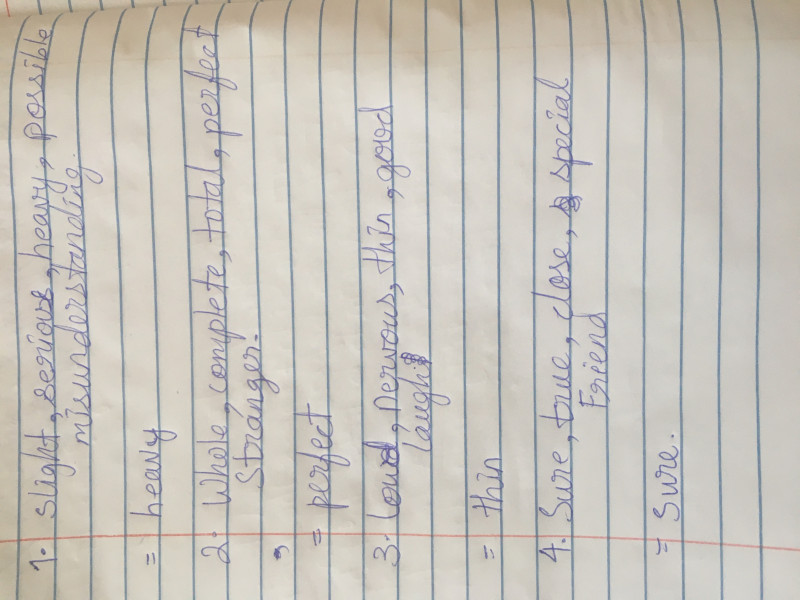 1. slight, serious, heavy, possible
misunderstanding.
= heavy
2. Whole, complete, total, perfect
Stranger.
,
= perfect
3. Loud, nervous, thin, good
laugh
= thin
4. Sure, true, close, special
Friend
= Sure.